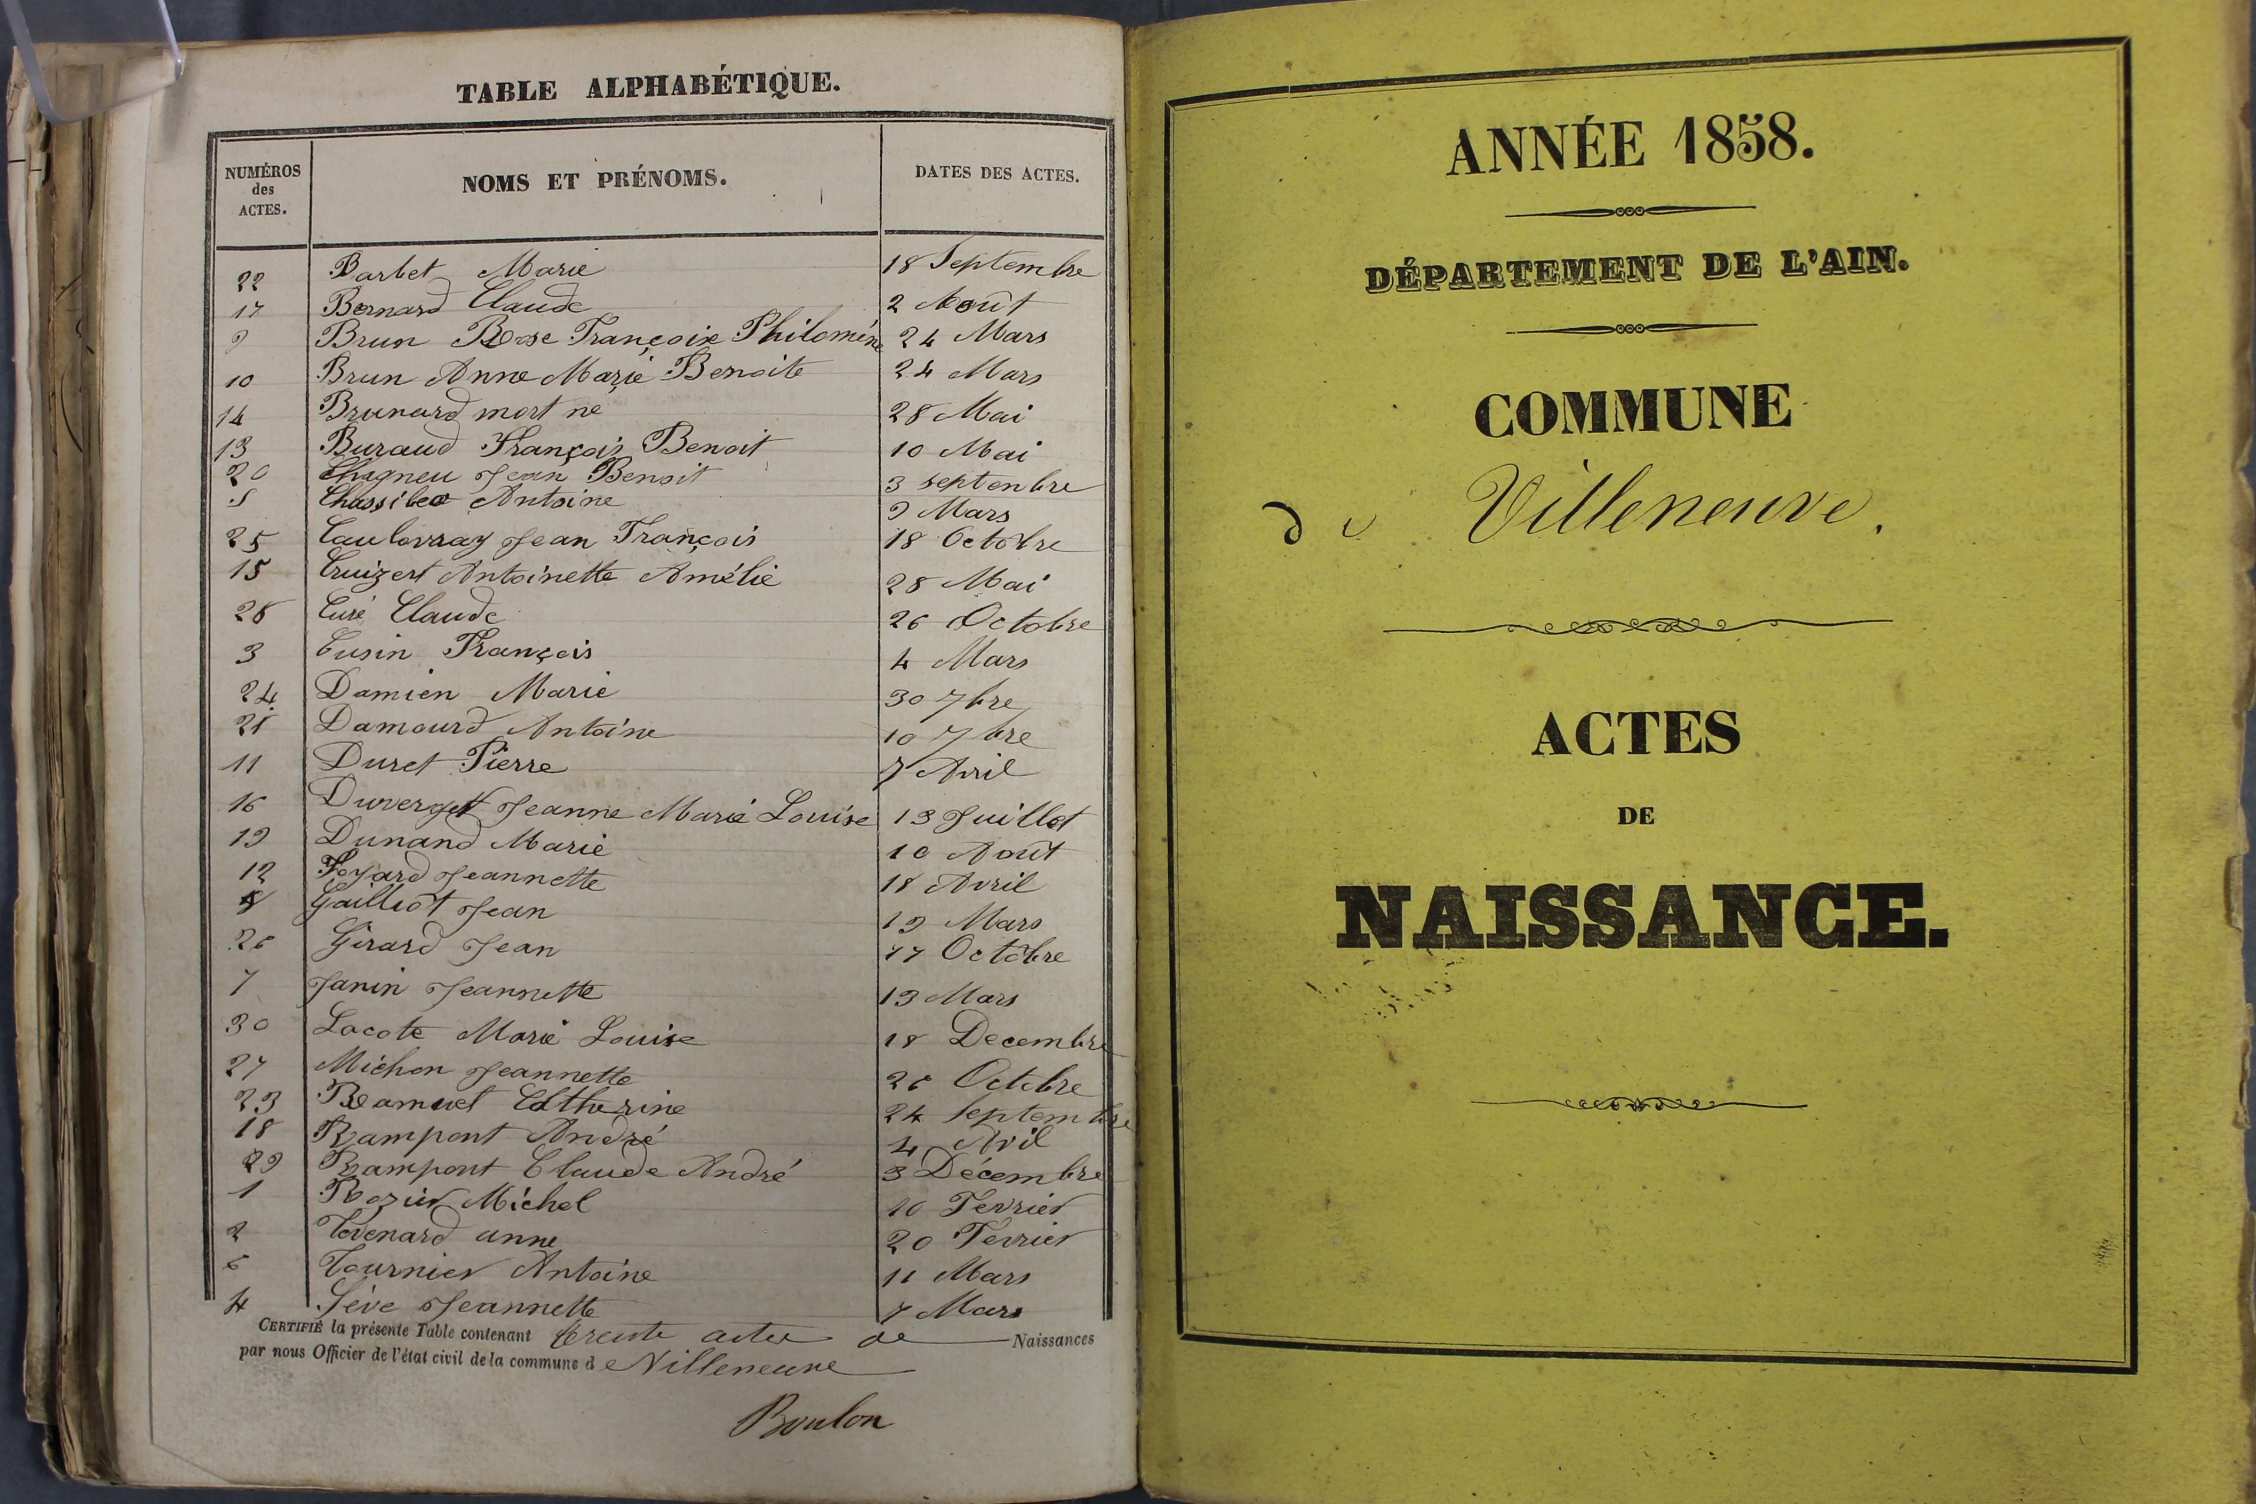 TABLE ALPHABÉTIQUE.
NUMÉROS des ACTES. NOMS ET PRÉNOMS. DATES DES ACTES.
22 Barbet Marie 18 Septembre
17 Bernard Claude 2 Août
9 Brun Rose Françoise Philomène 24 Mars
10 Brun Anne Marie Benoite 24 Mars
14 Brunard mort né 28 Mai
13 Buraud François Benoit 10 Mai
20 Chagneu Jean Benoit 3 septenbre
5 Antoine 9 Mars
25 Jean François 18 Octobre
15 Cruizert Antoinette Amélie 28 Mai
28 Curé Claude 26 Octobre
3 Cusin François 4 Mars
24 Damien Marie 30 7bre
21 Damourd Antoine 10 7bre
11 Duret Pierre 7 Avril
16 Duverget Jeanne Marie Louise 13 Juillet
19 Dunand Marie 10 Août
12 Foyard Jeannette 18 Avril
8 Gailliot Jean 19 Mars
26 Girard Jean 17 Octobre
7 Janin Jeannette 13 Mars
30 Lacote Marie Louise 18 Decembre
27 Michon Jeannette 26 Octobre
23 Ramuet Catherine 24 Septembre
18 Rampont André 4 Avil
29 Rampont Claude André 3 Décembre
1 Rozier Michel 10 Fevrier
2 Tevenard anne 20 Fevrier
6 Tournier Antoine 11 Mars
4 Séve Jeannette 7 Mars
CERTIFIÉ la présente Table contenant trente actes de Naissances
par nous Officier de l'état civil de la commune d e Villeneuve
Boulon
ANNÉE 1858.
DÉPARTEMENT DE L'AIN.
COMMUNE
de Villeneuve.
ACTES
DE
NAISSANCE.